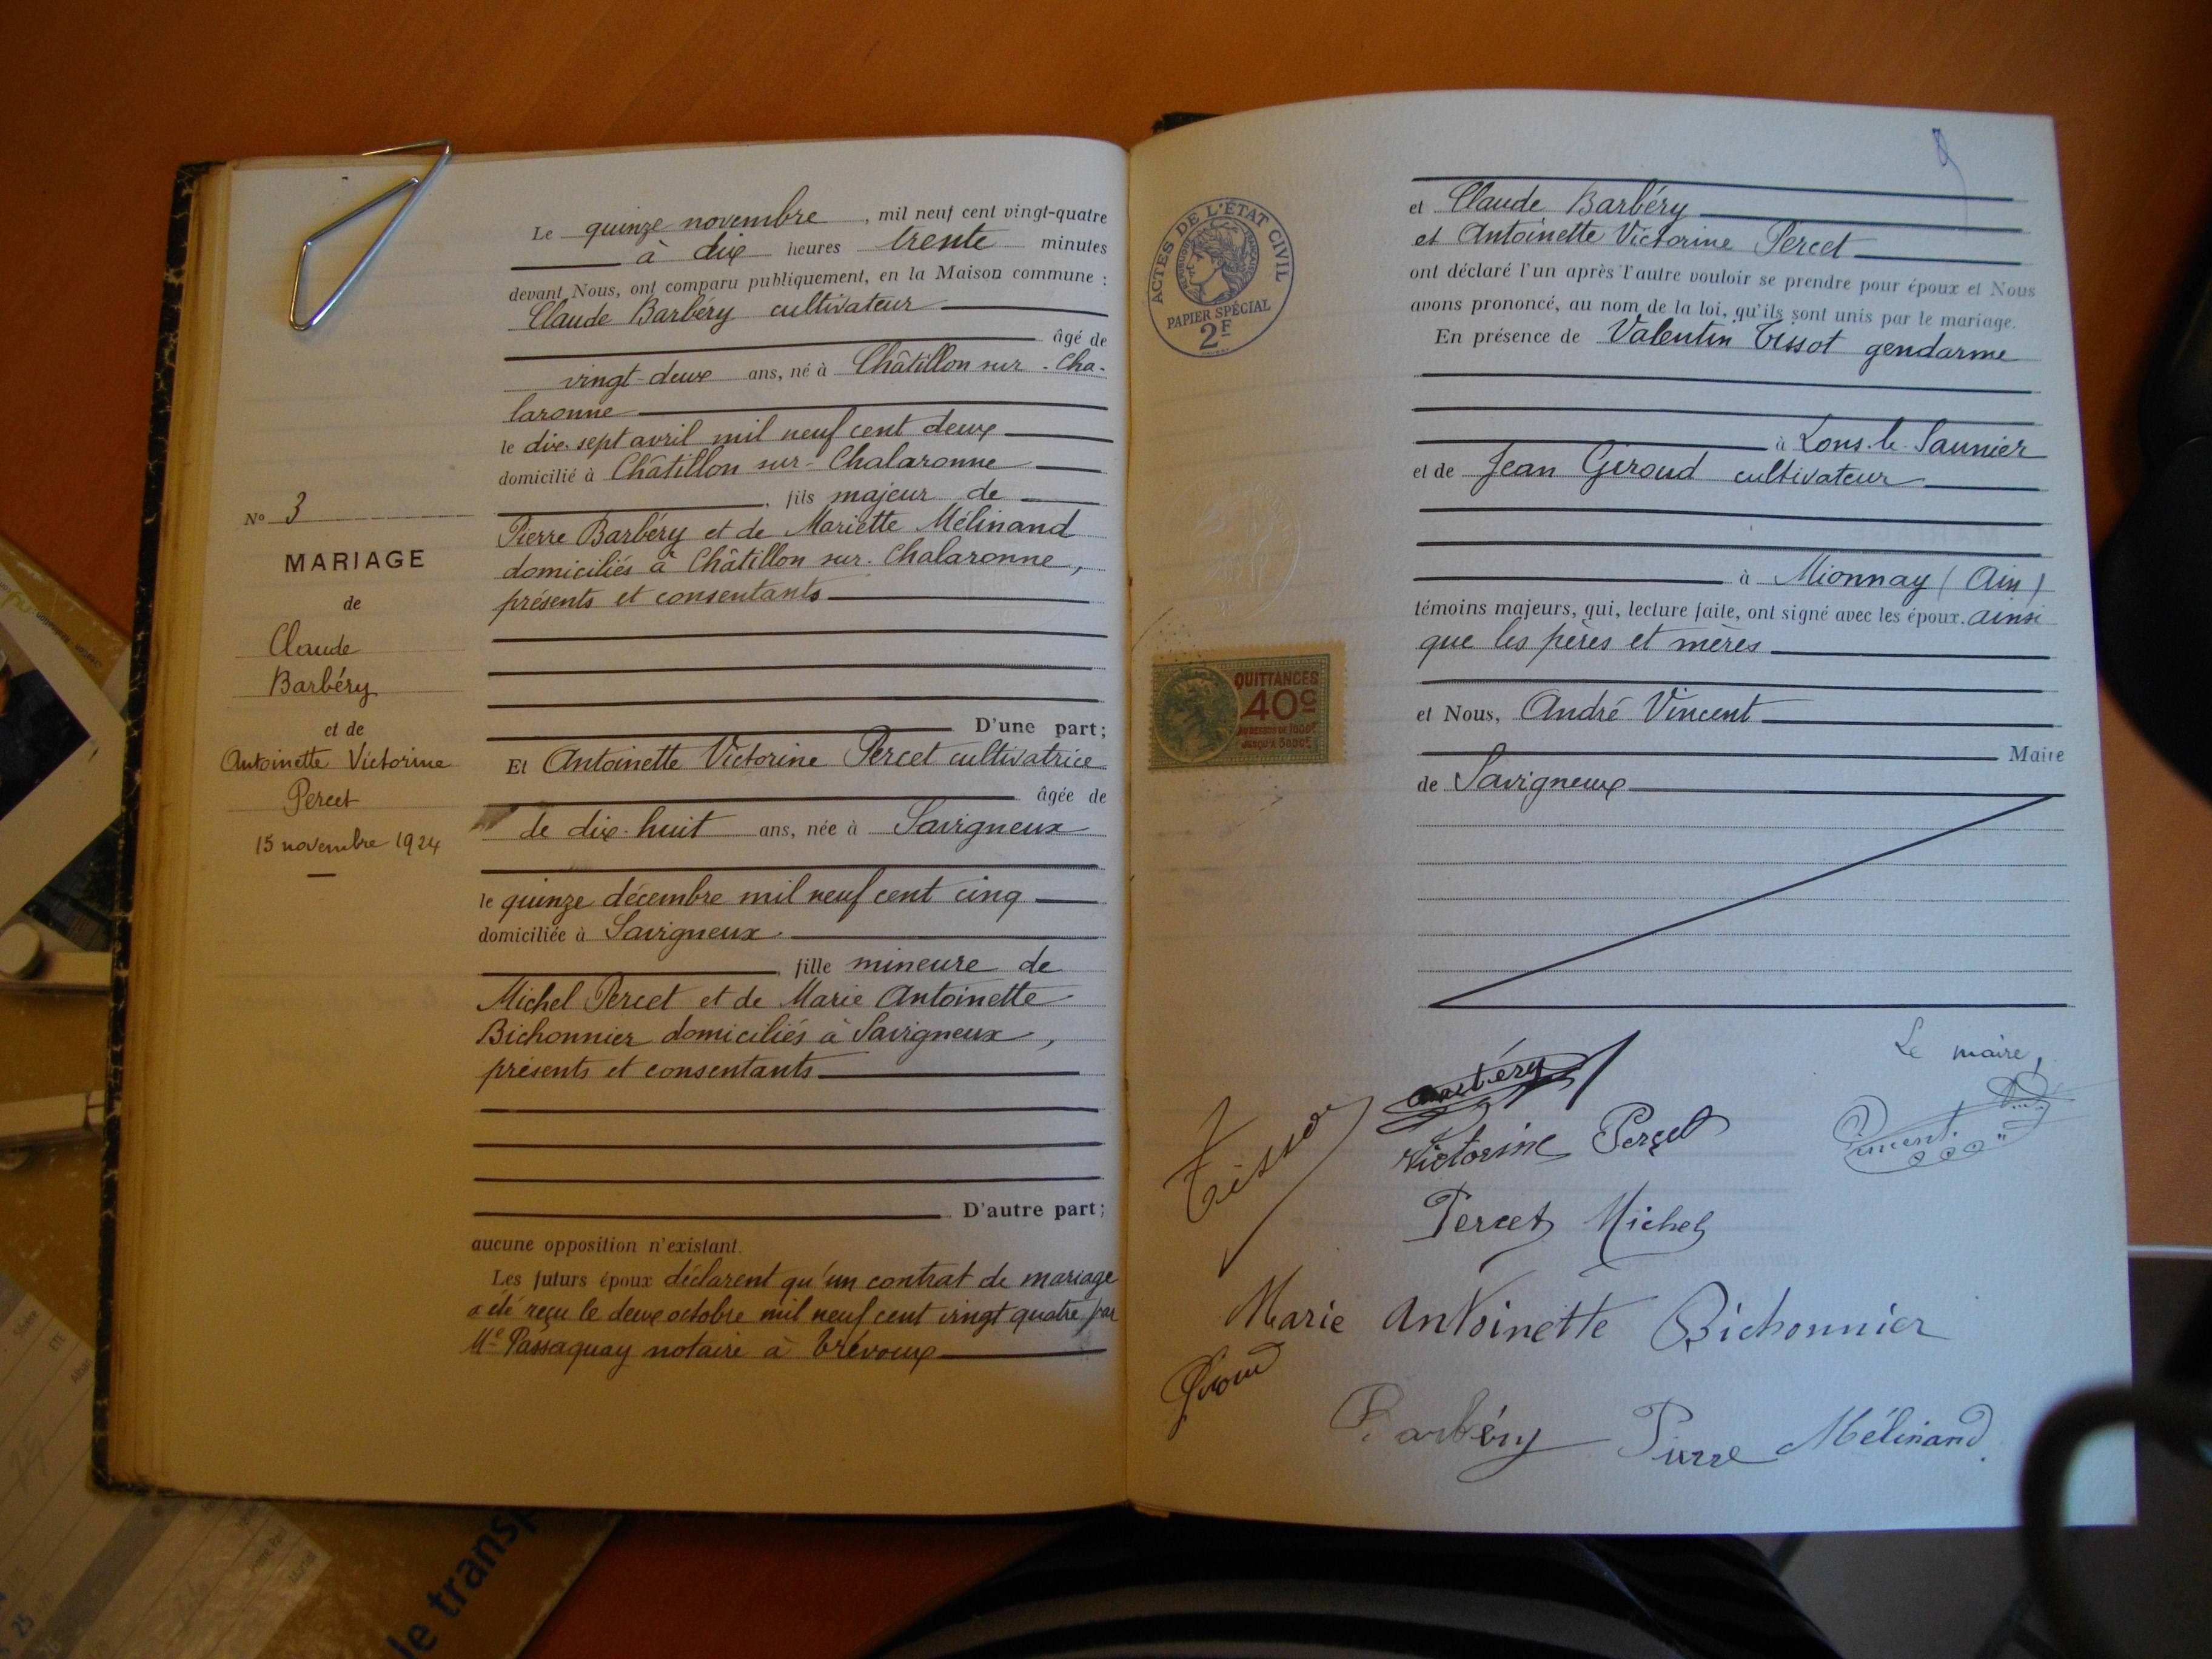 N° 3
MARIAGE
de
Claude
Barbéry
et de
Antoinette Victorine
Percet
15 novembre 1924
Le quinze novembre, mil neuf cent vingt-quatre
à dix heures trente minutes
devant Nous, ont comparu publiquement, en la Maison commune :
Claude Barbéry cultivateur
âgé de
vingt-deux ans, né à Châtillon sur - Cha-
laronne
le dix-sept avril mil neuf cent deux
domicilié à Châtillon sur-Chalaronne
, fils majeur de
Pierre Barbéry et de Mariette Mélinand
domiciliés à Châtillon sur-Chalaronne,
présents et consentants
D'une part;
Et Antoinette Victorine Percet cultivatrice
âgée de
de dix-huit ans, née à Savigneux
le quinze décembre mil neuf cent cinq
domiciliée à Savigneux
, fille mineure de
Michel Percet et de Marie Antoinette
Bichonnier domiciliés à Savigneux,
présents et consentants
D'autre part;
aucune opposition n'existant.
Les futurs époux déclarent qu'un contrat de mariage
a été reçu le deux octobre mil neuf cent vingt quatre par
Me Passaquay notaire à Trévoux
ACTES DE L'ÉTAT CIVIL
RÉPUBLIQUE FRANÇAISE
PAPIER SPÉCIAL
2F
QUITTANCES
40c
AU DESSUS DE 1000F
JUSQU'A 3000F
et Claude Barbéry
et Antoinette Victorine Percet
ont déclaré l'un après l'autre vouloir se prendre pour époux et Nous
avons prononcé, au nom de la loi, qu'ils sont unis par le mariage.
En présence de Valentin Tissot gendarme
à Lons-le-Saunier
et de Jean Giroud cultivateur
à Mionnay (Ain)
témoins majeurs, qui, lecture faite, ont signé avec les époux. ainsi
que les pères et mères
et Nous, André Vincent
Maire
de Savigneux
Le maire,
Barbéry
Tissot
Victorine Percet
Vincent
Percet Michel
Marie Antoinette Bichonnier
Giroud
Barbéry Pierre Mélinand
le transp
25